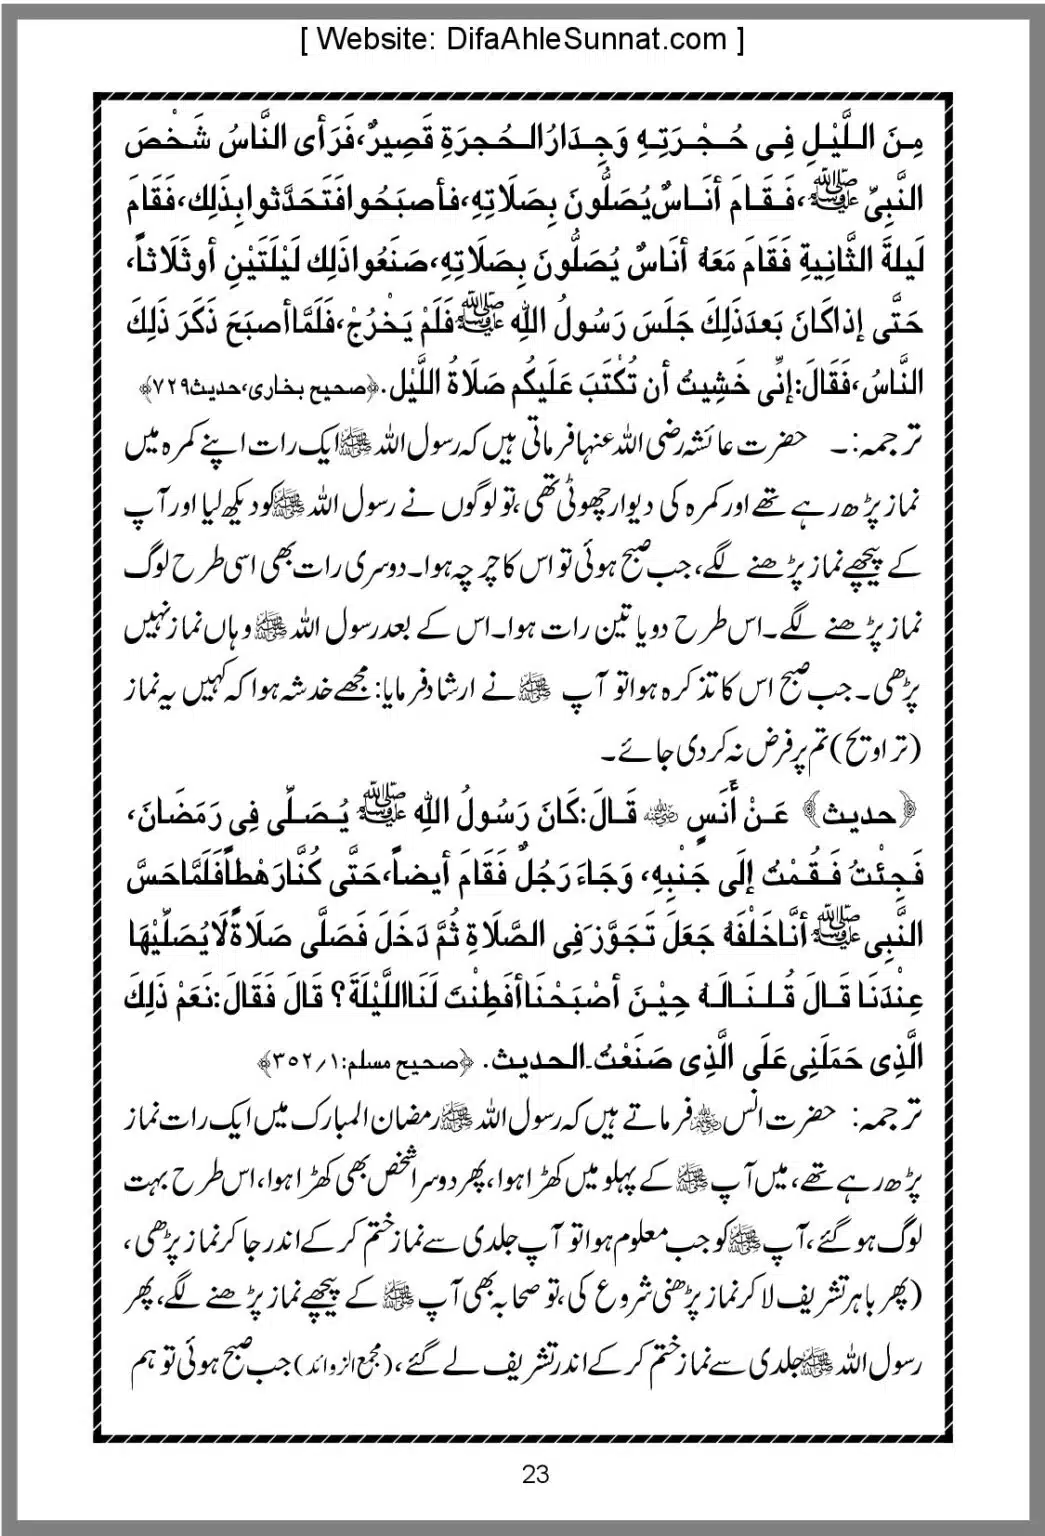 [ Website: DifaAhleSunnat.com ]
مِنَ اللَّيْلِ فِى حُجْرَتِهِ وَجِدَارُالْحُجرَةِ قَصِيرٌ،فَرَأى النَّاسُ شَخْصَ
النَّبِىِّ ﷺ،فَقَامَ أنَاسٌ يُصَلُّونَ بِصَلَاتِهِ،فأصبَحُوافَتَحَدَّثوابِذَلِكِ،فَقَامَ
لَيلةَ الثَّانِيةِ فَقَامَ مَعَهُ أنَاسٌ يُصَلُّونَ بِصَلَاتِهِ،صَنَعُواذَلِكَ لَيْلَتَيْنِ أوثَلَاثاً،
حَتَّى إذاكَانَ بَعدَذَلِكَ جَلَسَ رَسُولُ اللهِ ﷺ فَلَمْ يَخْرُجْ،فَلَمَّاأصبَحَ ذَكَرَ ذَلِكَ
النَّاسُ،فَقَالَ:إنِّى خَشِيتُ أن تُكْتَبَ عَلَيكُم صَلَاةُ اللَّيْل.﴿صحيح بخارى،حديث۷۲۹﴾
ترجمہ:۔ حضرت عائشہ رضی اللہ عنہا فرماتی ہیں کہ رسول اللہ ﷺ ایک رات اپنے کمرہ میں
نماز پڑھ رہے تھے اور کمرہ کی دیوار چھوٹی تھی،تو لوگوں نے رسول اللہ ﷺ کو دیکھ لیا اور آپ
کے پیچھے نماز پڑھنے لگے، جب صبح ہوئی تو اس کا چرچہ ہوا۔دوسری رات بھی اسی طرح لوگ
نماز پڑھنے لگے۔اس طرح دو یا تین رات ہوا۔اس کے بعد رسول اللہ ﷺ وہاں نماز نہیں
پڑھی۔ جب صبح اس کا تذکرہ ہوا تو آپ ﷺ نے ارشاد فرمایا: مجھے خدشہ ہوا کہ کہیں یہ نماز
(تراویح) تم پر فرض نہ کر دی جائے۔
﴿حديث﴾ عَنْ أَنَسٍ ؓ قَالَ:كَانَ رَسُولُ اللهِ ﷺ يُصَلِّى فِى رَمَضَانَ،
فَجِئْتُ فَقُمْتُ إلَى جَنْبِهِ، وَجَاءَ رَجُلٌ فَقَامَ أيضاً،حَتَّى كُنَّارَهْطاًفَلَمَّاحَسَّ
النَّبِى ﷺ أنَّاخَلْفَهُ جَعَلَ تَجَوَّزَفِى الصَّلَاةِ ثُمَّ دَخَلَ فَصَلَّى صَلَاةًلَايُصَلِّيْهَا
عِنْدَنَا قَالَ قُلنَالَهُ حِيْنَ أصْبَحْنَاأفَطِنْتَ لَنَااللَّيْلَةَ؟ قَالَ فَقَالَ:نَعَمْ ذَلِكَ
الَّذِى حَمَلَنِى عَلَى الَّذِى صَنَعْتُ۔الحديث. ﴿صحيح مسلم:۱/۳۵۲﴾
ترجمہ: حضرت انس ؓ فرماتے ہیں کہ رسول اللہ ﷺ رمضان المبارک میں ایک رات نماز
پڑھ رہے تھے، میں آپ ﷺ کے پہلو میں کھڑا ہوا، پھر دوسرا شخص بھی کھڑا ہوا، اس طرح بہت
لوگ ہو گئے، آپ ﷺ کو جب معلوم ہوا تو آپ جلدی سے نماز ختم کر کے اندر جا کر نماز پڑھی،
(پھر باہر تشریف لا کر نماز پڑھنی شروع کی،تو صحابہ بھی آپ ﷺ کے پیچھے نماز پڑھنے لگے، پھر
رسول اللہ ﷺ جلدی سے نماز ختم کر کے اندر تشریف لے گئے، (مجمع الزوائد) جب صبح ہوئی تو ہم
23